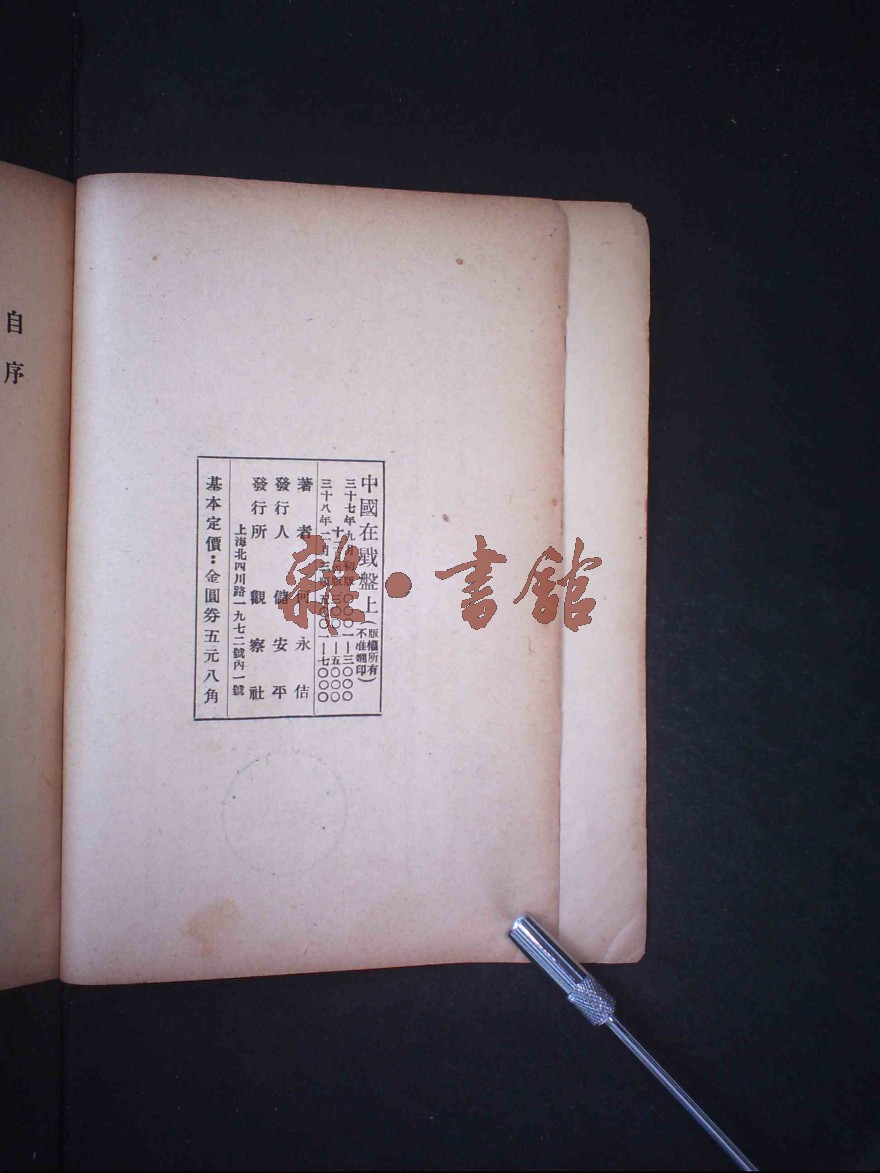 中國在戥盤上(版權所有 不准翻印)
三十七年九月初版〇〇〇一—三〇〇〇
三〇〇一—五〇〇〇
三十八年二月三版五〇〇一—七〇〇〇
著者 何永佶
發行人 儲安平
發行所 觀察社
上海北四川路一九七二號內一號
基本定價：金圓券五元八角
自序
雜·書館